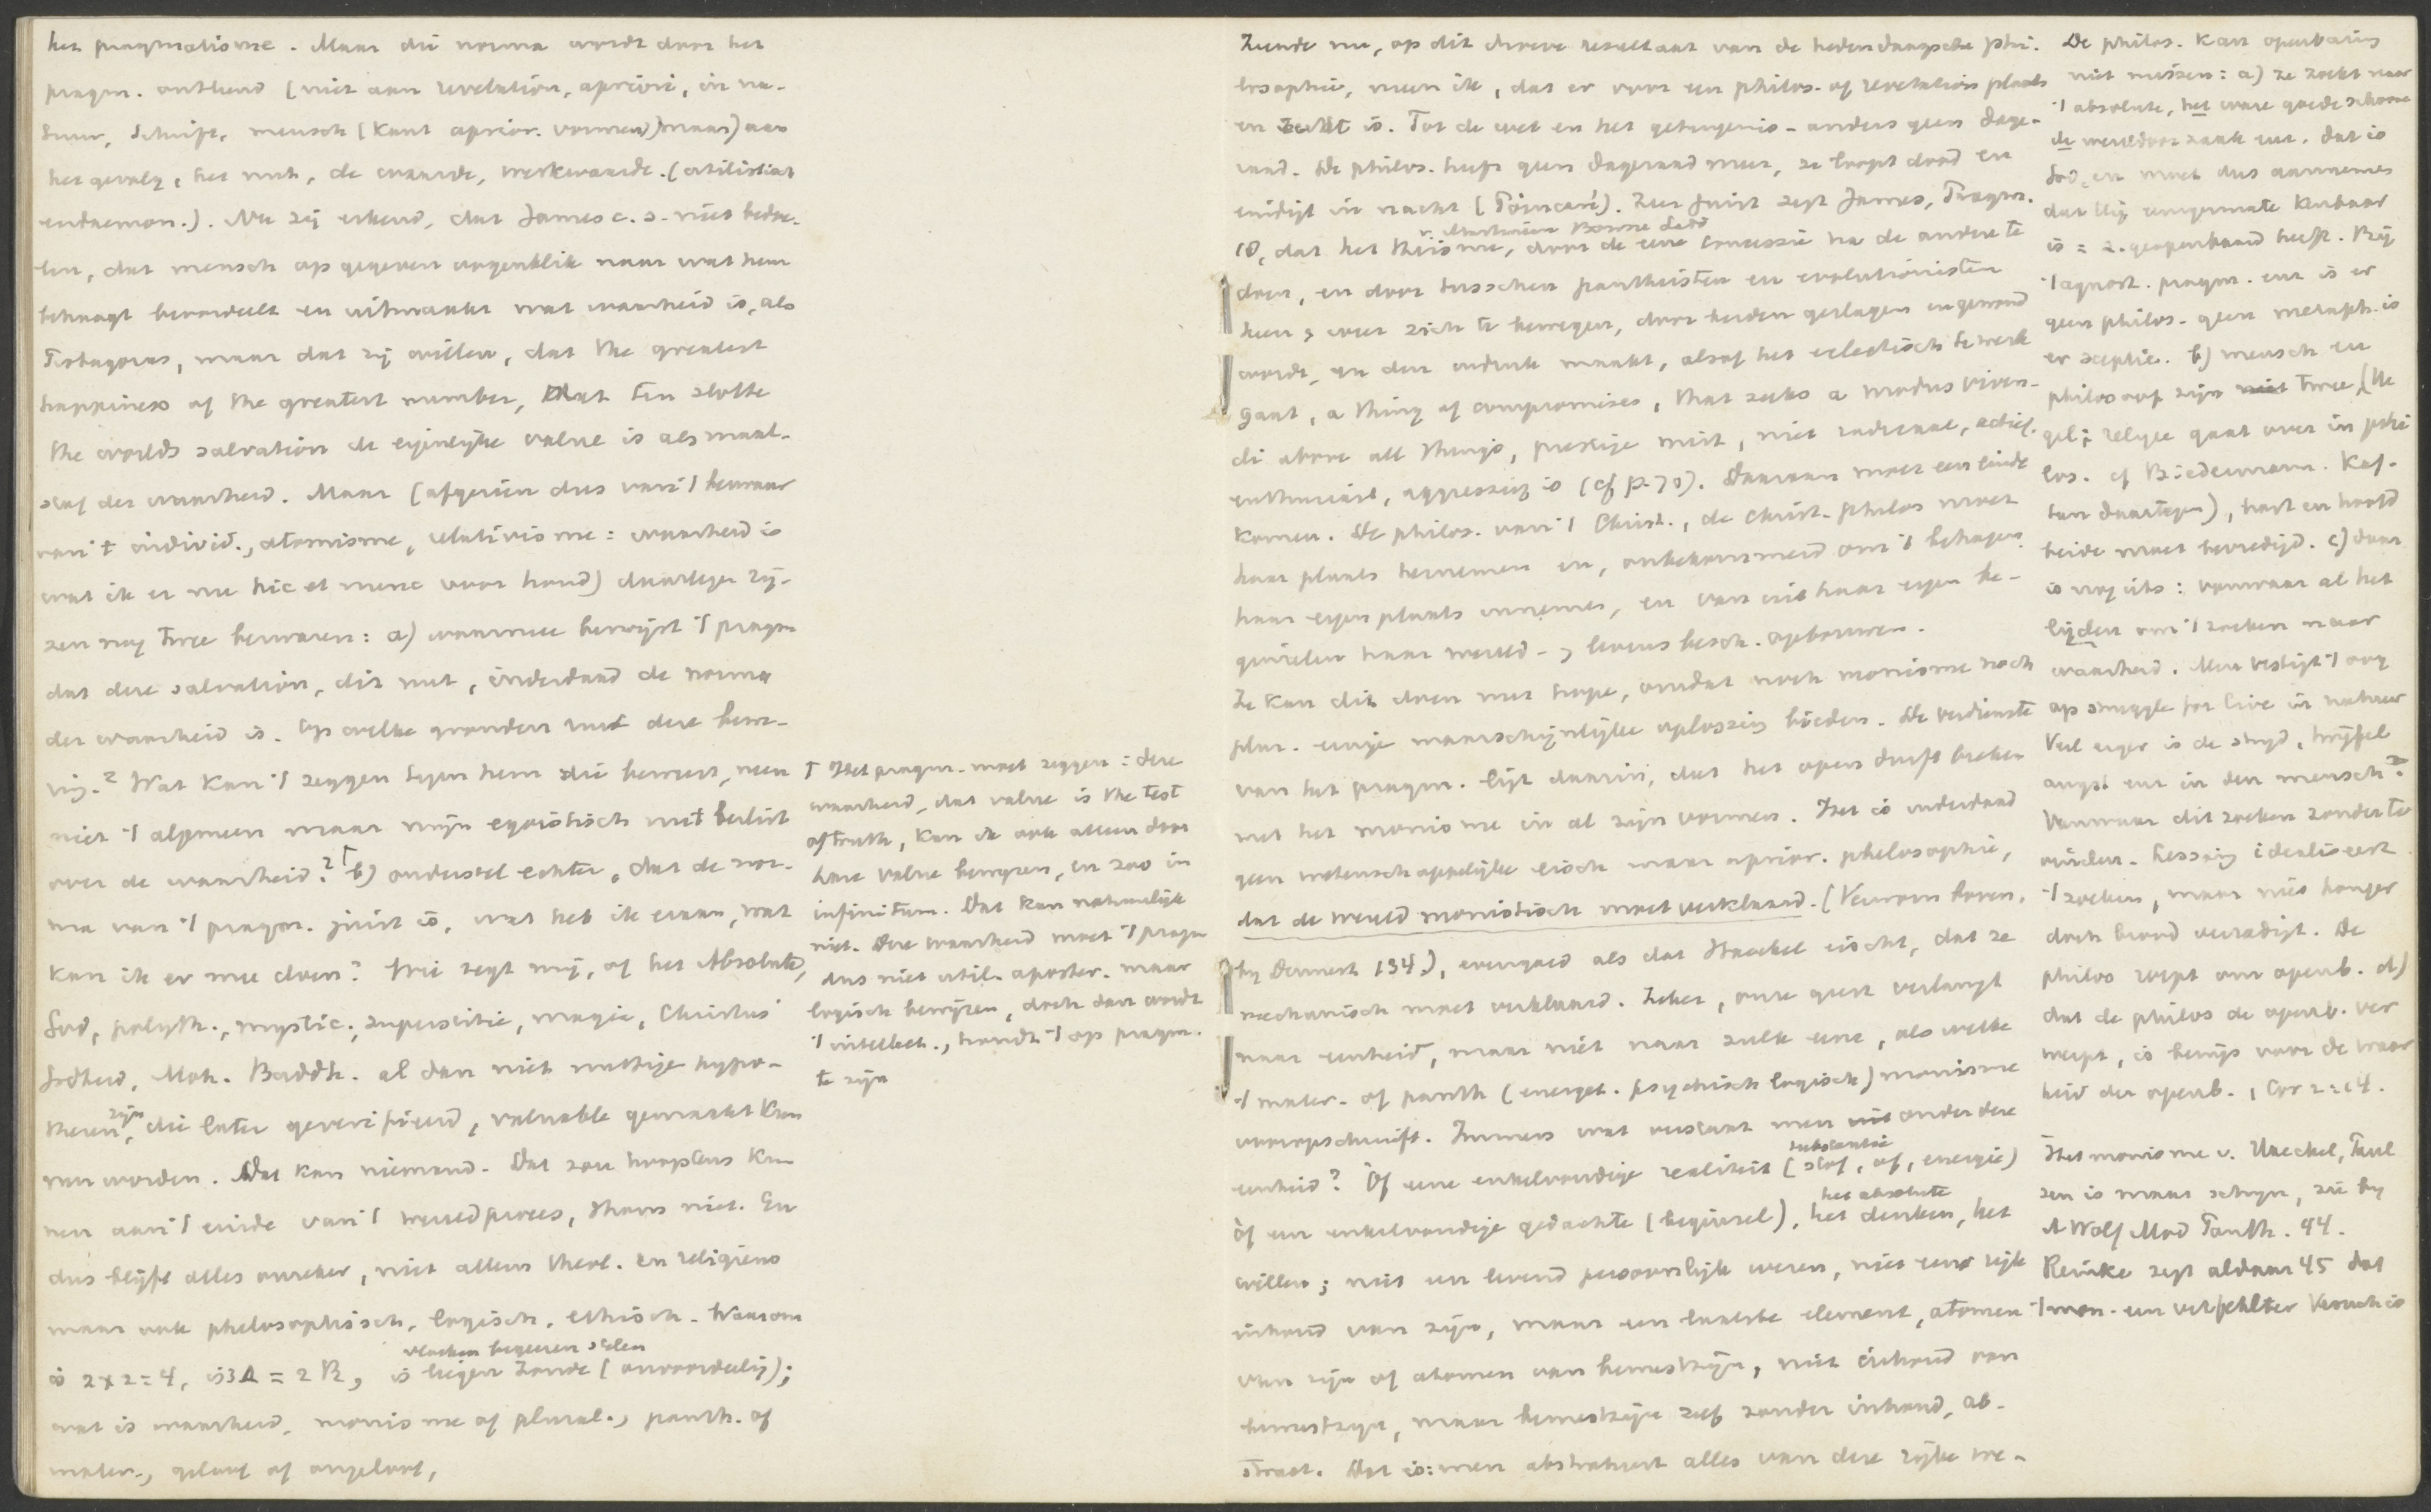 het pragmatisme. Maar die norma wordt door het
pragm. ontleend (niet aan revelation, apriori, in na-
tuur, Schrift, mensch (Kant aprior. vormen) maar) aan
het gevolg, het nut, de waarde, werkwaarde. (utilistisch
eudaemon.). Nu zij erkend, dat James c.s. niet bedoe-
len, dat mensch op gegeven oogenblik naar wat hem
behaagt beoordeelt en uitmaakt wat waarheid is, als
Protagoras, maar dat zij willen, dat the greatest
happiness of the greatest number, dat ten slotte
the worlds salvation de eigenlijke value is als maat-
staf der waarheid. Maar (afgezien dus van 't bezwaar
van 't individ., atomisme, relativisme: waarheid is
wat ik er nu hic et nunc voor houd) daartegen rij-
zen nog twee bezwaren: a) waarmee bewijst 't pragm
dat deze salvation, dit nut, inderdaad de norma
der waarheid is. Op welke gronden rust deze bewe-
ring? Wat kan 't zeggen tegen hem die beweert, neen
niet 't algemeen maar mijn egoistisch nut beslist
over de waarheid? b) ondersteld echter, dat de nor-
ma van 't pragm. juist is, wat heb ik eraan, wat
kan ik er mee doen? Wie zegt mij, of het Absolute,
God, polyth., mystic., superstitie, magie, Christus'
Godheid, Moh. Buddh. al dan niet nuttige hypo-
thesen zijn, die later geverifieerd, valuable gemaakt kun
nen worden. Dat kan niemand. Dat zou hoogstens kun
nen aan 't einde van 't wereldproces, thans niet. En
dus blijft alles onzeker, niet alleen theol. en religieus
maar ook philosophisch, logisch, ethisch. Waarom
is 2 x 2 = 4, is 3 Δ = 2 R, is liegen vloeken begeeren stelen zonde (onvoordeelig);
wat is waarheid, monisme of plural., panth. of
mater., geloof of ongeloof,
↑ Het pragm. moet zeggen: deze
waarheid, dat value is the test
of truth, kan ik ook alleen door
hare value bewijzen, en zoo in
infinitum. Dat kan natuurlijk
niet. Deze waarheid moet 't pragm
dus niet util. aposter. maar
logisch bewijzen, doch dan wordt
't intellect., houdt 't op pragm.
te zijn
Ziende nu, op dit droeve resultaat van de hedendaagsche phi-
losophie, meen ik, dat er voor een philos. of revelation plaats
en recht is. Tot de wet en het getuigenis - anders geen dage-
raad. De philos. heeft geen dageraad meer, ze loopt dood en
eindigt in nacht (Poincaré). Zeer juist zegt James, Pragm.
18, dat het theisme, door de eene concessie na de andere te
doen, en door tusschen pantheisten en evolutionisten
heen en weer zich te bewegen, door beiden geslagen en gewond
wordt, en den indruk maakt, alsof het eclectisch te werk
gaat, a thing of compromises, that seeks a modus viven-
di above all things, prestige mist, niet radicaal, actief,
enthusiast, aggressief is (cf p. 70). Daaraan moet een einde
komen. De philos. van 't Christ., de Christ. philos moet
haar plaats hernemen en, onbekommerd om 't behagen
haar eigen plaats innemen, en van uit haar eigen be-
ginselen haar wereld- en levensbesch. opbouwen.
Ze kan dit doen met hope, omdat noch monisme noch
plur. eenige waarschijnlijke oplossing bieden. De verdienste
van het pragm. ligt daarin, dat het open durft breken
met het monisme in al zijn vormen. Het is inderdaad
geen wetenschappelijke eisch maar aprior. philosophie,
dat de wereld monistisch moet verklaard. (Verworn boven,
by Dennert 134.), evengoed als dat Haeckel eischt, dat ze
mechanisch moet verklaard. Zeker, onze geest verlangt
naar eenheid, maar niet naar zulk eene, als welke
't mater. of panth (energet. psychisch logisch) monisme
vooropschuift. Immers wat verstaat men onder deze
eenheid? Of eene enkelvoudige realiteit (substantie stof, of, energie)
òf een enkelvoudige gedachte (beginsel), het absolute het denken, het
willen; niet een levend persoonlijk wezen, niet een rijke
inhoud van zijn, maar een laatste element, atomen
van zijn of atomen van bewustzijn, niet inhoud van
bewustzijn, maar bewustzijn zelf zonder inhoud, ab-
stract. Dat is: men abstraheert alles van deze rijke we-
De philos. kan openbaring
niet missen: a) ze zoekt naar
't absolute, het ware goede schoone
de wereldoorzaak enz. dat is
God, en moet dus aannemen
dat Hij eenigermate kenbaar
is = z. geopenbaard heeft. Bij
't agnost. pragm. enz is er
geen philos. geen metaph. is
er sceptic. b) mensch en
philosoof zijn niet twee, (He
gel: religie gaat over in phi
los. cf Biedermann. Kaf-
tan daartegen), hart en hoofd
beide moet bevredigd. c) daar
is nog iets: vanwaar al het
lijden om 't zoeken naar
waarheid. Men vestigt 't oog
op struggle for live in natuur
Veel erger is de strijd, twijfel
angst enz in den mensch?
Vanwaar dit zoeken zonder te
vinden. Lessing idealiseert
't zoeken, maar niet honger
doch brood verzadigt. De
philos roept om openb. d)
dat de philos de openb. ver
werpt, is bewijs voor de waar
heid der openb. 1 Cor 2:14.
Het monisme v. Haeckel, Paul
sen is maar schijn, zie by
A Wolf Mod Panth. 44.
Reinke zegt aldaar 45 dat
't mon. een verfehlter Versuch is